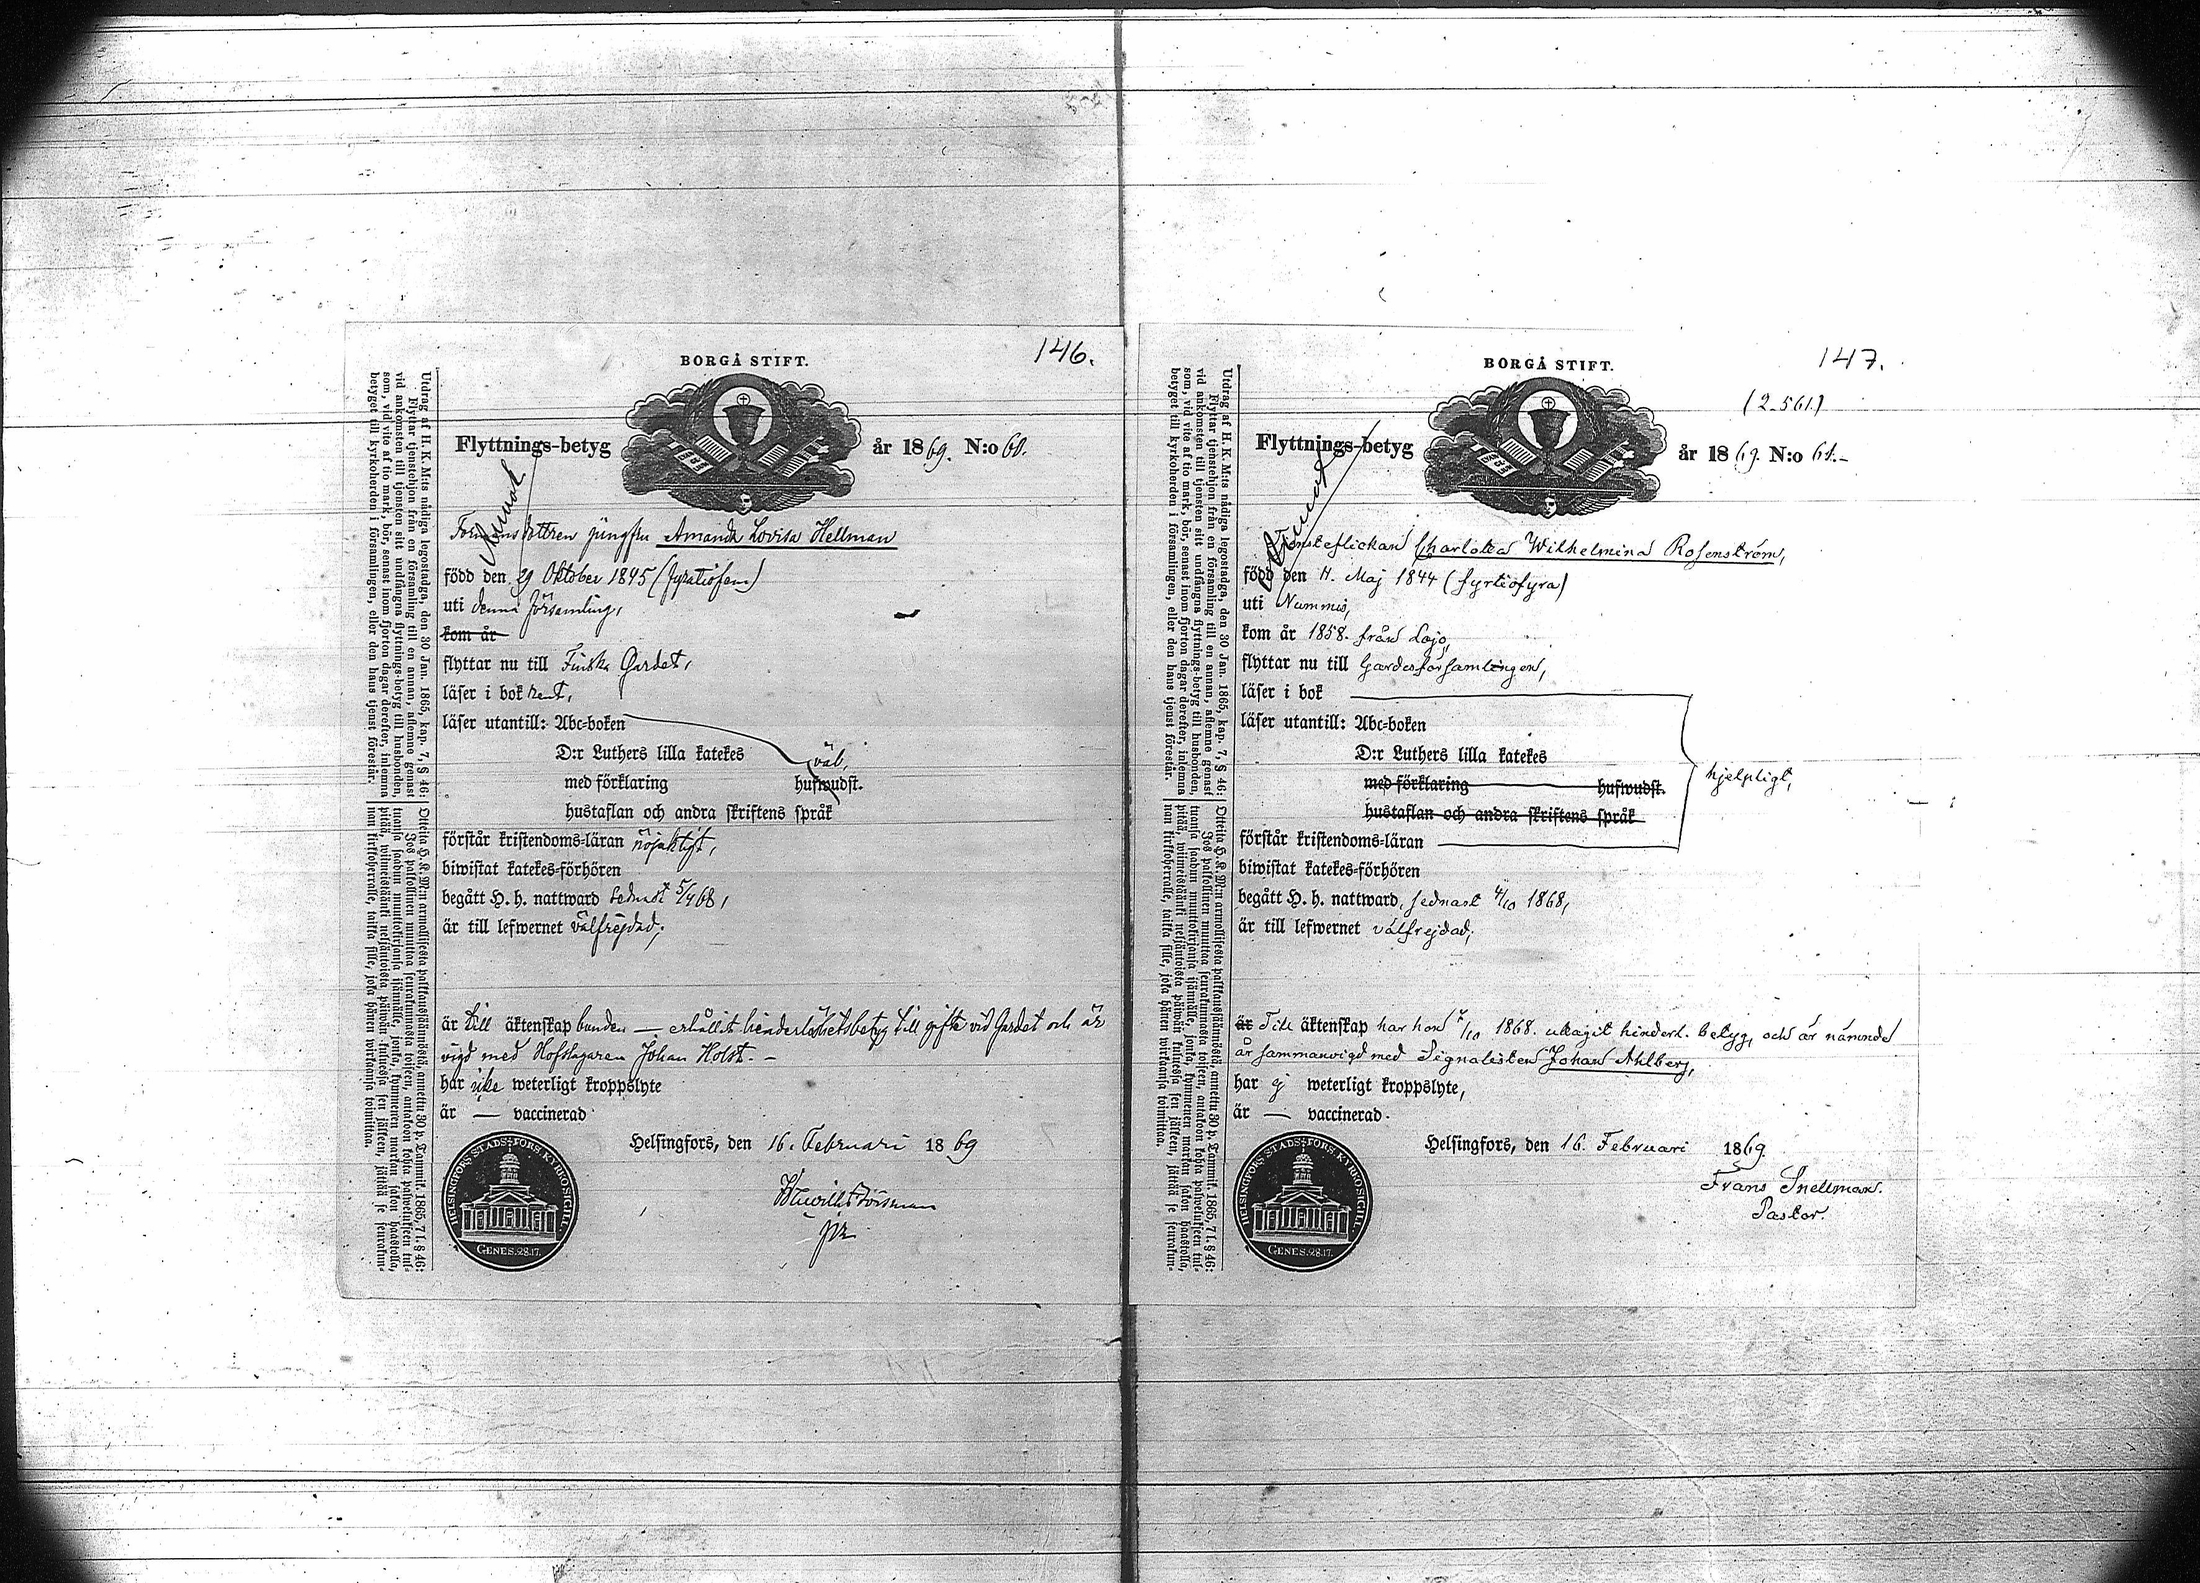 146.
BORGÅ STIFT.
Flyttnings-betyg år 1869. N:o 60.
jungfru Amanda Lovisa Hellman
född den 29 Oktober 1845 (fyratiofem)
uti denna församling,
kom år
flyttar nu till Finska Gardet,
läser i bok rent,
läser utantill: Abc-boken
D:r Luthers lilla katekes väl,
med förklaring hufwudst.
hustaflan och andra skriftens språk
förstår kristendoms-läran nöjaktigt,
biwistat katekes-förhören
begått H. h. nattward sednast 5/4 68,
är till lefwernet välfrejdad;
är till äktenskap bunden — erhållit hinderlöshetsbetyg till gifte vid Gardet och är
vigd med Hofslagaren Johan Holst. –
har icke weterligt kroppslyte
är — vaccinerad
Helsingfors, den 16. Februari 1869
HELSINGFORS STADS-FÖRS. KYRKO SIGILL.
GENES. 28.17.
Utdrag af H. K. M:ts nådiga legostadga, den 30 Jan. 1865, kap. 7, § 46:
Flyttar tjenstehjon från en församling till en annan, aflemne genast
vid ankomsten till tjensten sitt undfångna flyttnings-betyg till husbonden,
som, vid vite af tio mark, bör, senast inom fjorton dagar derefter, inlemna
betyget till kyrkoherden i församlingen, eller den hans tjenst förestår.
147.
(2.561.)
BORGÅ STIFT.
Flyttnings-betyg år 1869. N:o 61.-
Tjensteflickan Charlotta Wilhelmina Rosenström,
född den 11. Maj 1844 (fyrtiofyra)
uti Nummis,
kom år 1858. från Lojo,
flyttar nu till Gardesförsamlingen,
läser i bok
läser utantill: Abc-boken
D:r Luthers lilla katekes
med förklaring hufwudst. hjelpligt,
hustaflan och andra skriftens språk
förstår kristendoms-läran
biwistat katekes-förhören
begått H. h. nattward, sednast 4/10 1868,
är till lefwernet välfrejdad;
är Till äktenskap har hon 7/10 1868. uttagit hinderl. betyg, och är nämnde
är sammanvigd med Signalisten Johan Ahlberg,
har ej weterligt kroppslyte,
är — vaccinerad.
Helsingfors, den 16. Februari 1869.
Frans Snellman.
Pastor.
HELSINGFORS STADS-FÖRS. KYRKO SIGILL.
GENES. 28.17.
Utdrag af H. K. M:ts nådiga legostadga, den 30 Jan. 1865, kap. 7, § 46:
Flyttar tjenstehjon från en församling till en annan, aflemne genast
vid ankomsten till tjensten sitt undfångna flyttnings-betyg till husbonden,
som, vid vite af tio mark, bör, senast inom fjorton dagar derefter, inlemna
betyget till kyrkoherden i församlingen, eller den hans tjenst förestår.